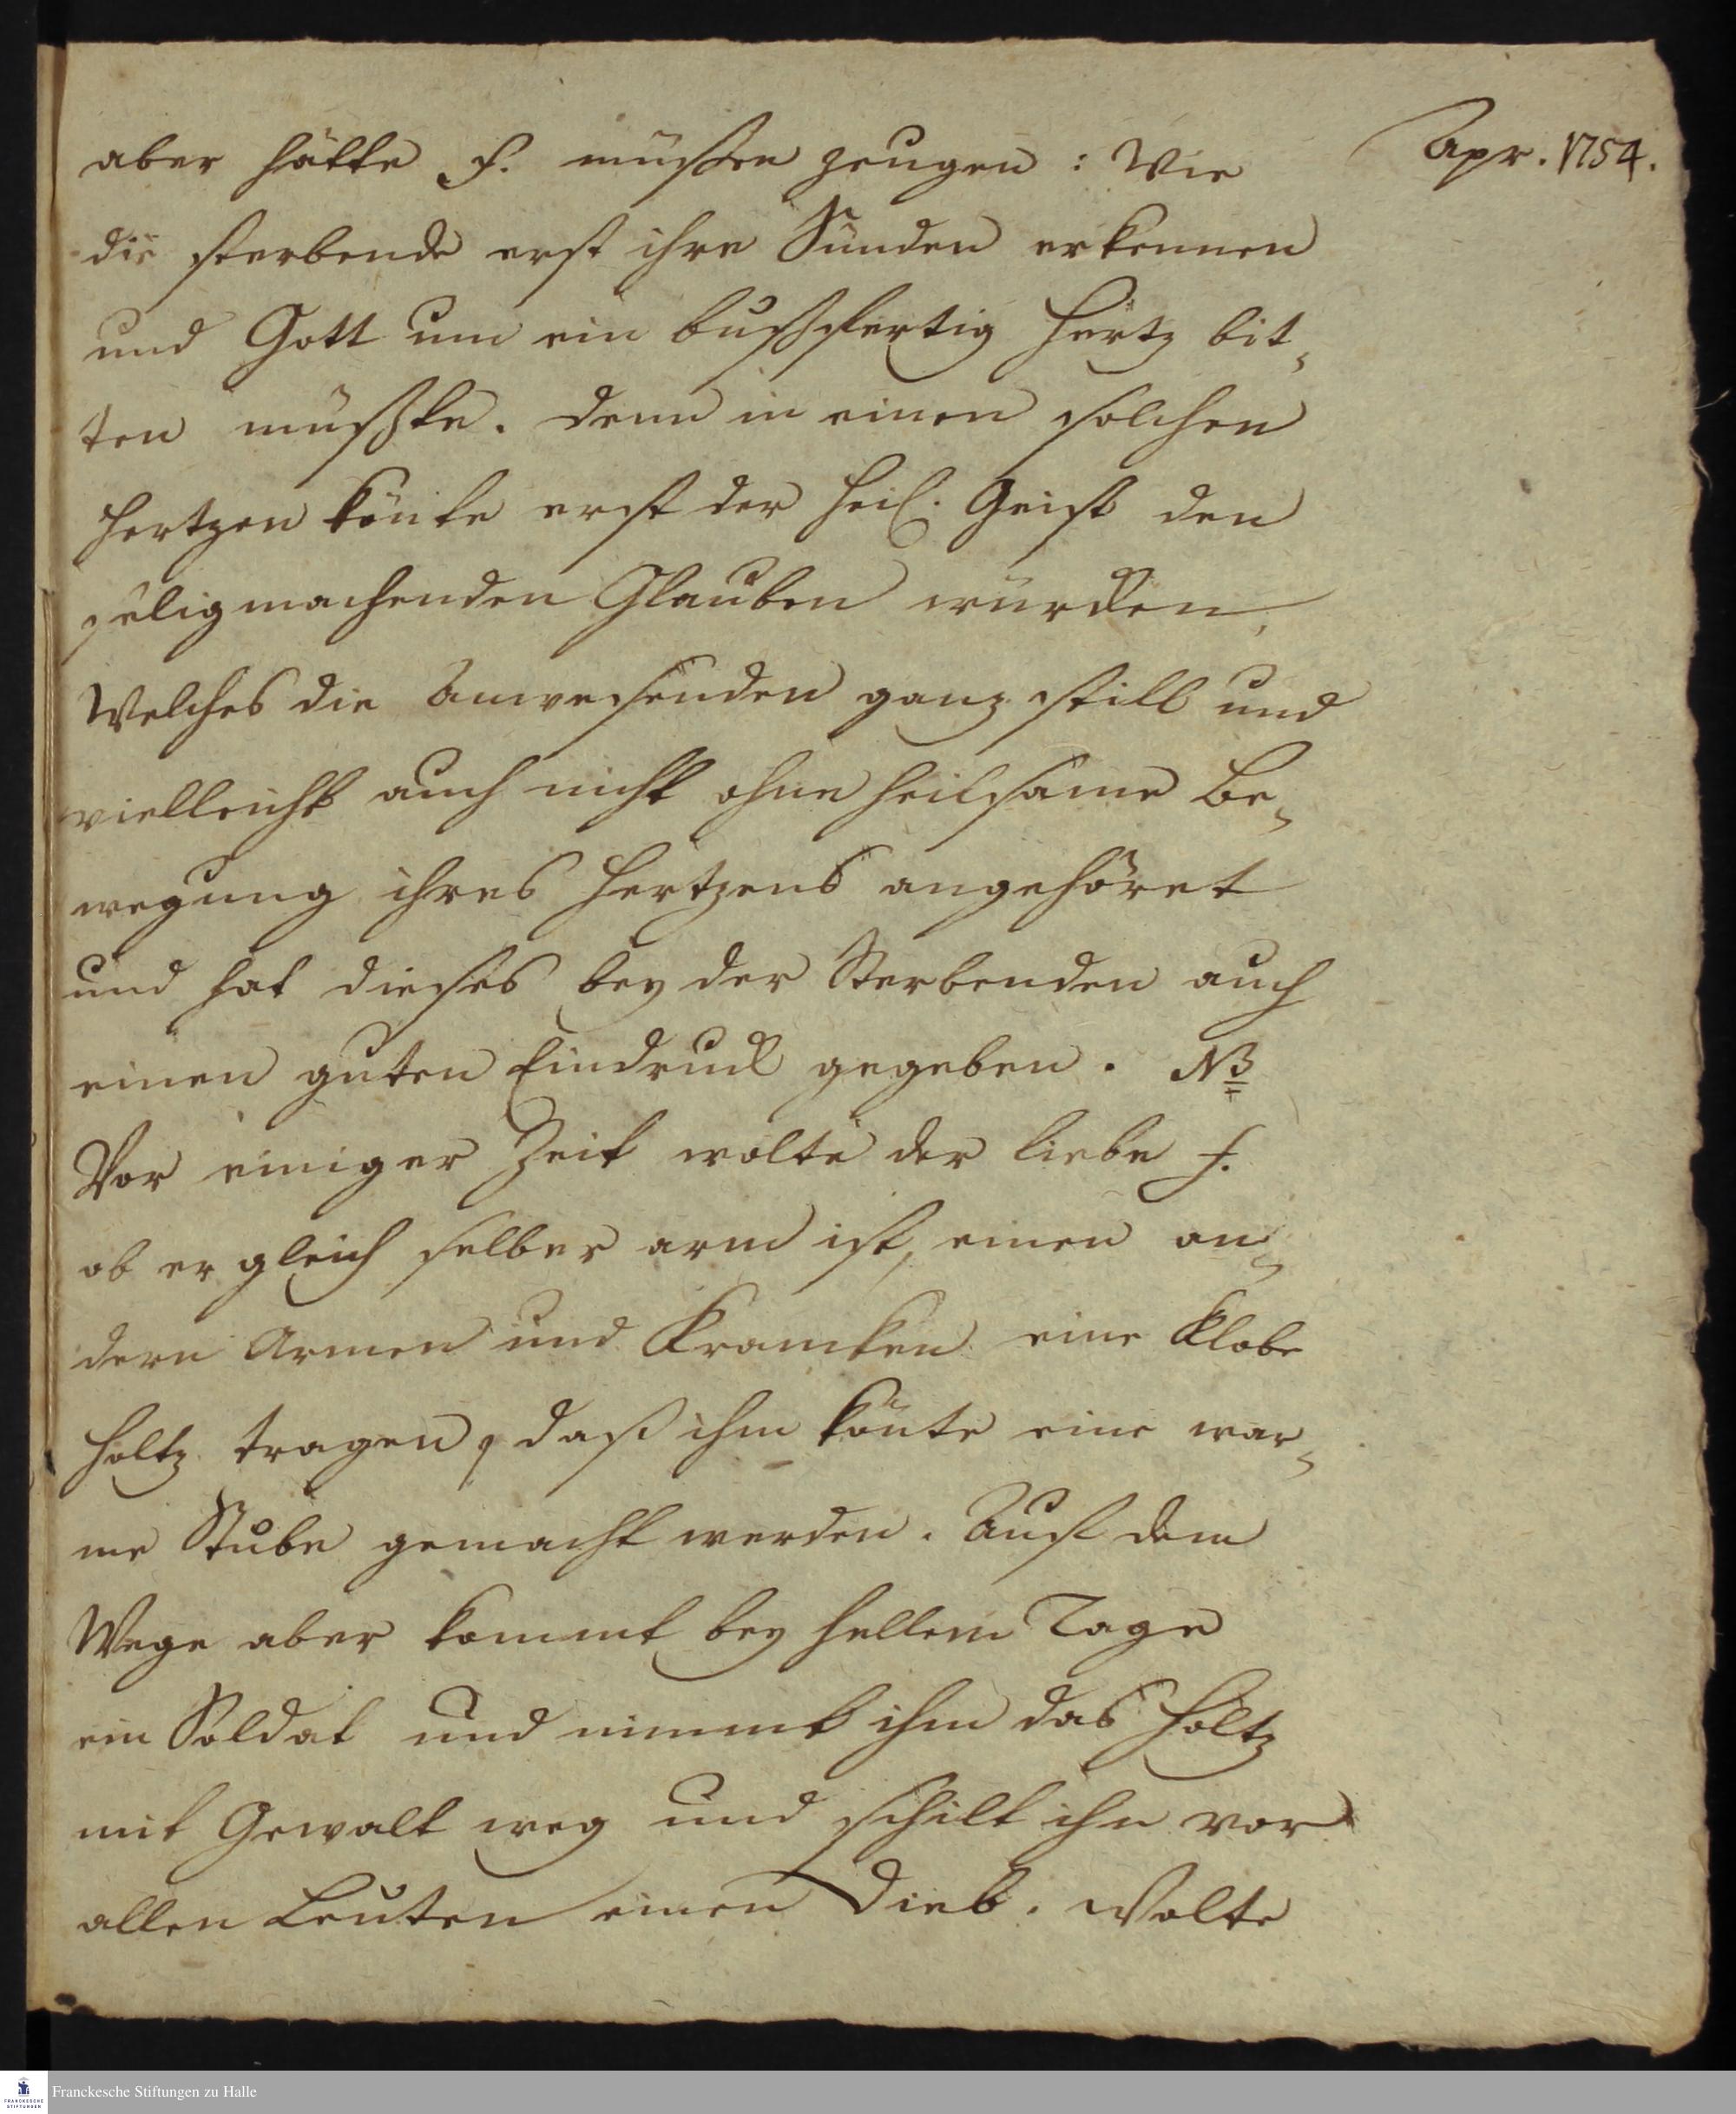 Apr. 1754.
aber hätte F. müssen zeugen: Wie
die sterbende erst ihre Sünden erkennen
und Gott um ein bußfertig Hertz bit-
ten müßte. Denn in einen solchen
Hertzen könte erst der Heil. Geist den
seligmachenden Glauben würcken,
Welches die Anwesenden ganz still und
vielleicht auch nicht ohne heilsame Be-
wegung ihres Hertzens angehöret
und hat dieses bey der Sterbenden auch
einen guten Eindruck gegeben. NB
Vor einiger Zeit wolte der liebe F.
ob er gleich selber arm ist, einen an-
dern Armen und Krancken eine Klobe
Holtz tragen, daß ihm könte eine war-
me Stube gemacht werden. Auf dem
Wege aber kommt bey hellem Tage
ein Soldat und nimmt ihm das Holtz
mit Gewalt weg und schilt ihn vor
allen Leuten einen Dieb. Wolte
Franckesche Stiftungen zu Halle
FRANCKESCHE
STIFTUNGEN